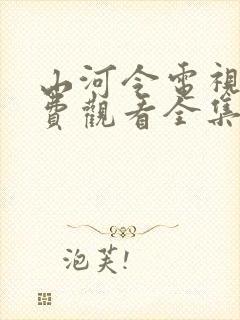 山河令電視
費觀看全集
泡芙!